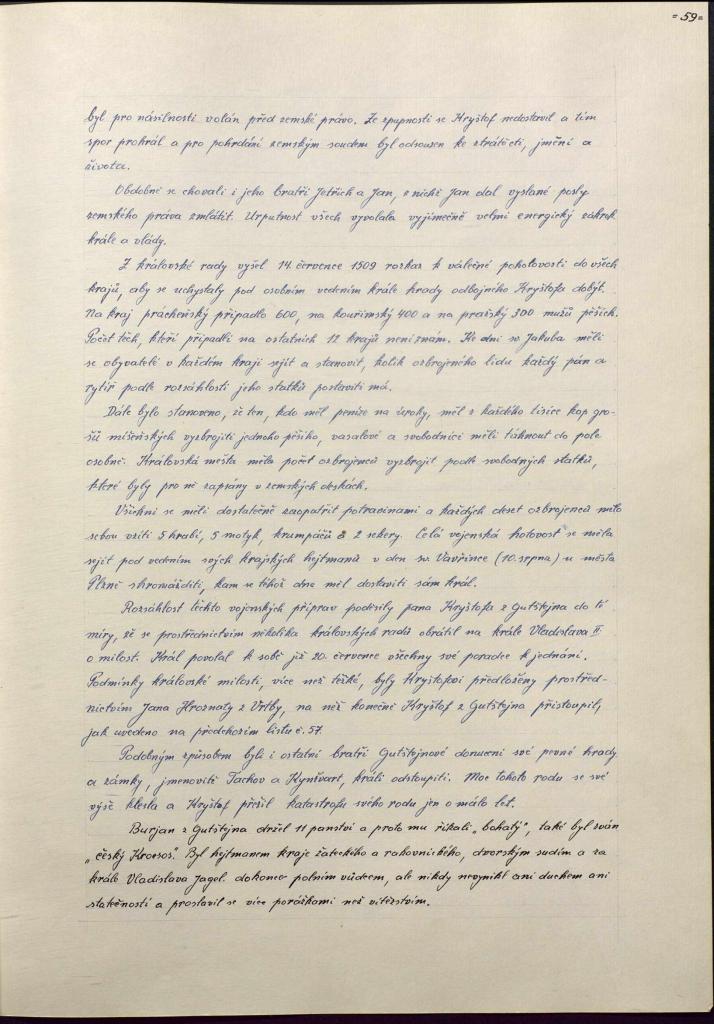 = 59 =
byl pro násilnosti volán před zemské právo. Ze zpupnosti se Kryštof nedostavil a tím
spor prohrál a pro pohrdání zemským soudem byl odsouzen ke ztrátě cti, jmění a
života.
Obdobně se chovali i jeho bratři Jetřich a Jan, z nichž Jan dal vyslané posly
zemského práva zmlátit. Urputnost všech vyvolala vyjímečně velmi energický zákrok
krále a vlády.
Z královské rady vyšel 14. července 1509 rozkaz k válečné pohotovosti do všech
krajů, aby se uchystaly pod osobním vedením krále hrady odbojného Kryštofa dobýt.
Na kraj prácheňský připadlo 600, na kouřimský 400 a na pražský 300 mužů pěších.
Počet těch, kteří připadli na ostatních 12 krajů není znám. Ke dni sv. Jakuba měli
se obyvatelé v každém kraji sejít a stanovit, kolik ozbrojeného lidu každý pán a
rytíř podle rozsáhlosti jeho statků postaviti má.
Dále bylo stanoveno, že ten, kdo měl peníze na úroky, měl z každého tisíce kop gro-
šů míšeňských vyzbrojiti jednoho pěšího, vasalové a svobodníci měli táhnout do pole
osobně. Královská města měla počet ozbrojenců vyzbrojit podle svobodných statků,
které byly pro ně zapsány v zemských deskách.
Všichni se měli dostatečně zaopatřit potravinami a každých deset ozbrojenců mělo
sebou vzíti 5 hrabí, 5 motyk, krumpáčů a 2 sekery. Celá vojenská hotovost se měla
sejít pod vedením svých krajských hejtmanů v den sv. Vavřince (10. srpna) u města
Plzně shromážditi, kam se téhož dne měl dostaviti sám král.
Rozsáhlost těchto vojenských příprav poděsily pana Kryštofa z Gutštejna do té
míry, že se prostřednictvím několika královských radů obrátil na krále Vladislava II
o milost. Král povolal k sobě již 20. července všechny své poradce k jednání.
Podmínky královské milosti, více než těžké, byly Kryštofovi předloženy prostřed-
nictvím Jana Hroznaty z Vrtby, na něž konečně Kryštof z Gutštejna přistoupil,
jak uvedeno na předchozím listu č. 57.
Podobným způsobem byli i ostatní bratři Gutštejnové donuceni své pevné hrady
a zámky, jmenovitě Tachov a Kynžvart, králi odstoupiti. Moc tohoto rodu se své
výše klesla a Kryštof přežil katastrofu svého rodu jen o málo let.
Burjan z Gutštejna držel 11 panství a proto mu říkali „bohatý", také byl zván
„český Kroesos". Byl hejtmanem kraje žateckého a rakovnického, dvorským sudím a za
krále Vladislava Jagel. dokonce polním vůdcem, ale nikdy nevynikl ani duchem ani
statečností a proslavil se více porážkami než vítězstvím.